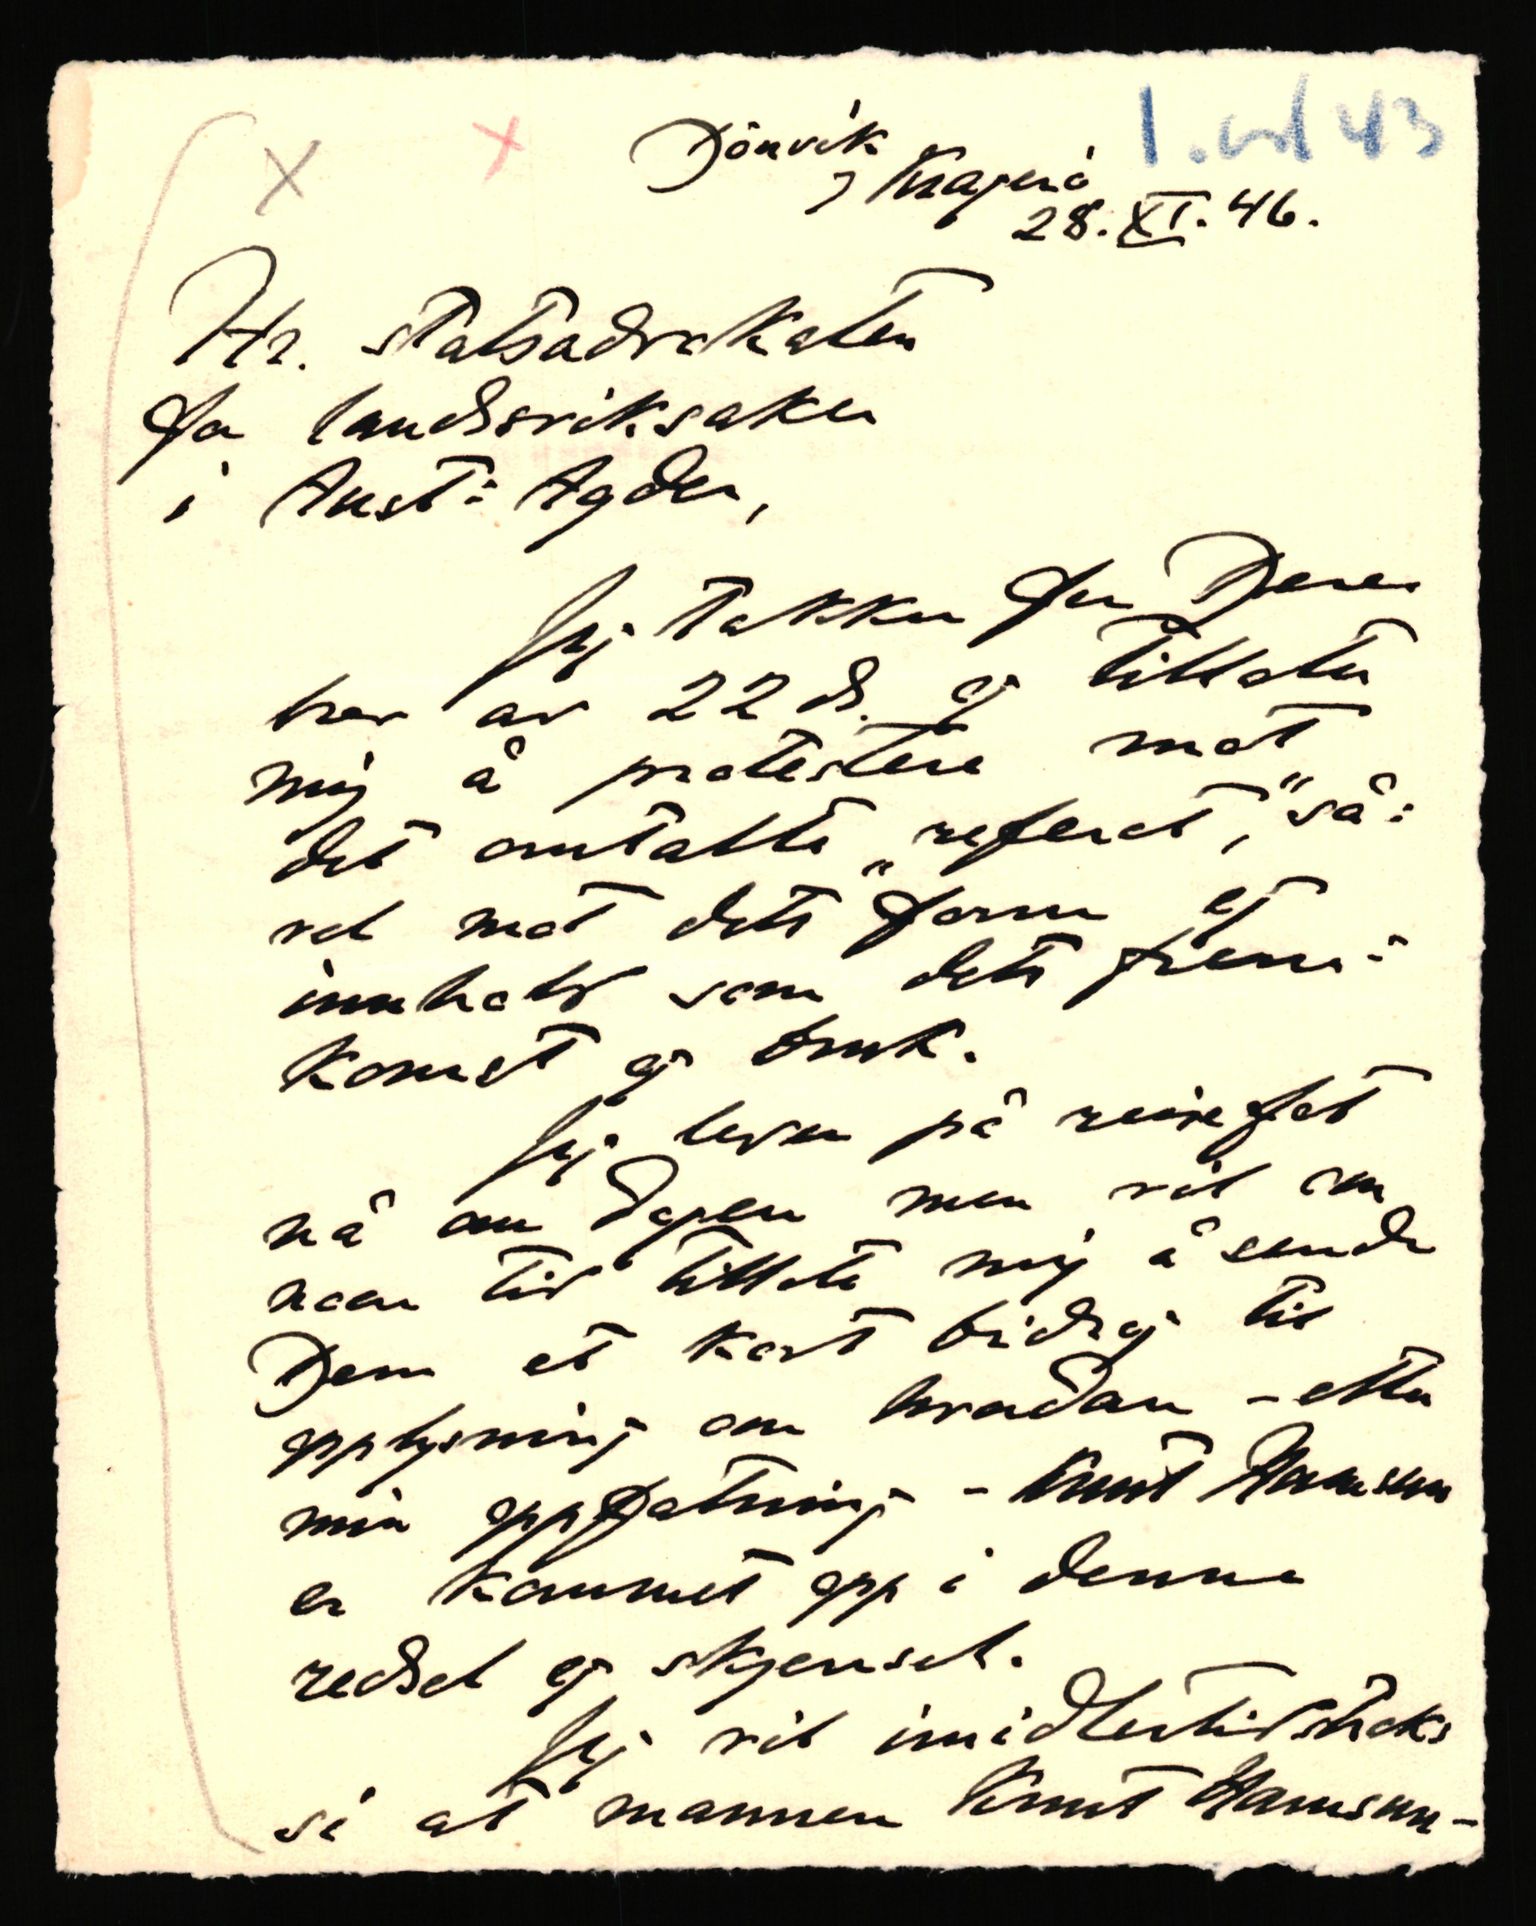 1. vd 43
Dönvik
pr Kragerö
28. XI. 46.
Hr. statsadvokaten
for landssviksaker
i Aust-Agder,
Jeg takker for Deres
brev av 22 ds. og tillater
mig å protestere mot
det omtalte „referat," så-
vel mot dets form og
innhold som dets frem-
komst og bruk.
Jeg lever på reisefot
nå om dagen men vil om
noen tid tillate mig å sende
Dem et kort bidrag til
opplysning om hvordan - etter
min oppfatning - Knut Hamsun
er kommet opp i denne
redsel og skjensel.
Jeg vil imidlertid straks
si at mannen Knut Hamsun -